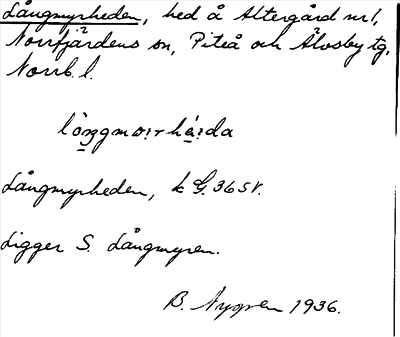 Långmyrheden, hed å Altergård nr 1,
Norrfjärdens sn, Piteå och Älvsby tg,
Norrb. l.
Långmyrheden, k G. 36 SV.
Ligger S. Långmyren.
B. Nygren 1936.